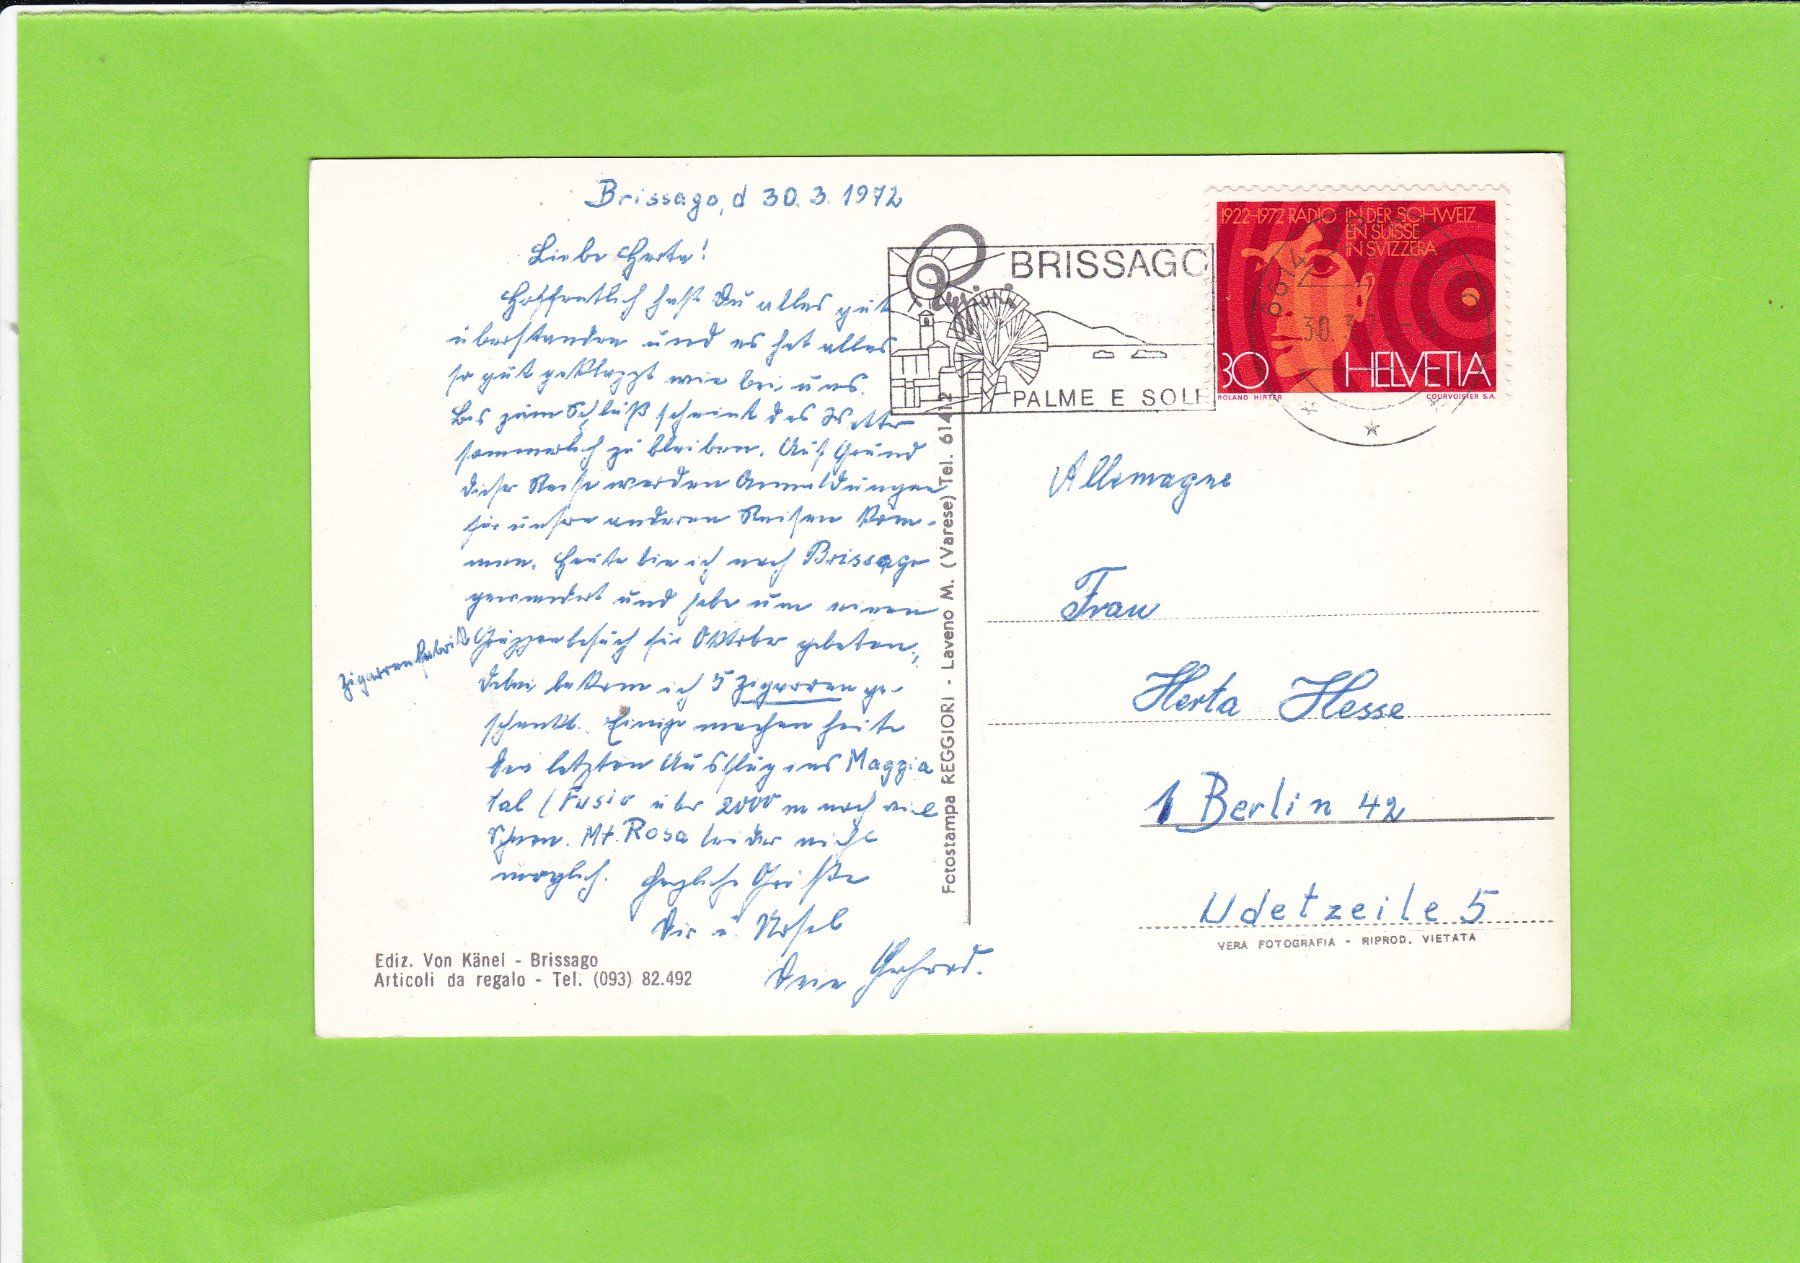 Brissago, d 30.3.1972
Liebe Herta!
Hoffentlich hast Du alles gut
überstanden und es hat alles
so gut geklappt wie bei uns.
Bis zum Schluß scheint das Wetter
sommerlich zu bleiben. Auf Grund
dieser Reise werden Anmeldungen
für unsere anderen Reisen kom-
men. Heute bin ich nach Brissago
gewandert und habe um einen
Zigarrenfabrik
Gruppenbesuch für Oktober gebeten,
dabei bekam ich 5 Zigarren ge-
schenkt. Einige machen heute
den letzten Ausflug ins Maggia
tal (Fusio über 2000 m noch viel
Schnee. Mt. Rosa leider nicht
möglich. Herzliche Grüße
Dir u.
Dein Gerhard.
Ediz. Von Känel - Brissago
Articoli da regalo - Tel. (093) 82.492
Fotostampa REGGIORI - Laveno M. (Varese) Tel. 61412
BRISSAGO
PALME E SOLE
1922-1972 RADIO IN DER SCHWEIZ
EN SUISSE
IN SVIZZERA
6614
30.3.
30 HELVETIA
ROLAND HIRTER COURVOISIER S.A.
Allemagne
Frau
Herta Hesse
1 Berlin 42
Udetzeile 5
VERA FOTOGRAFIA - RIPROD. VIETATA